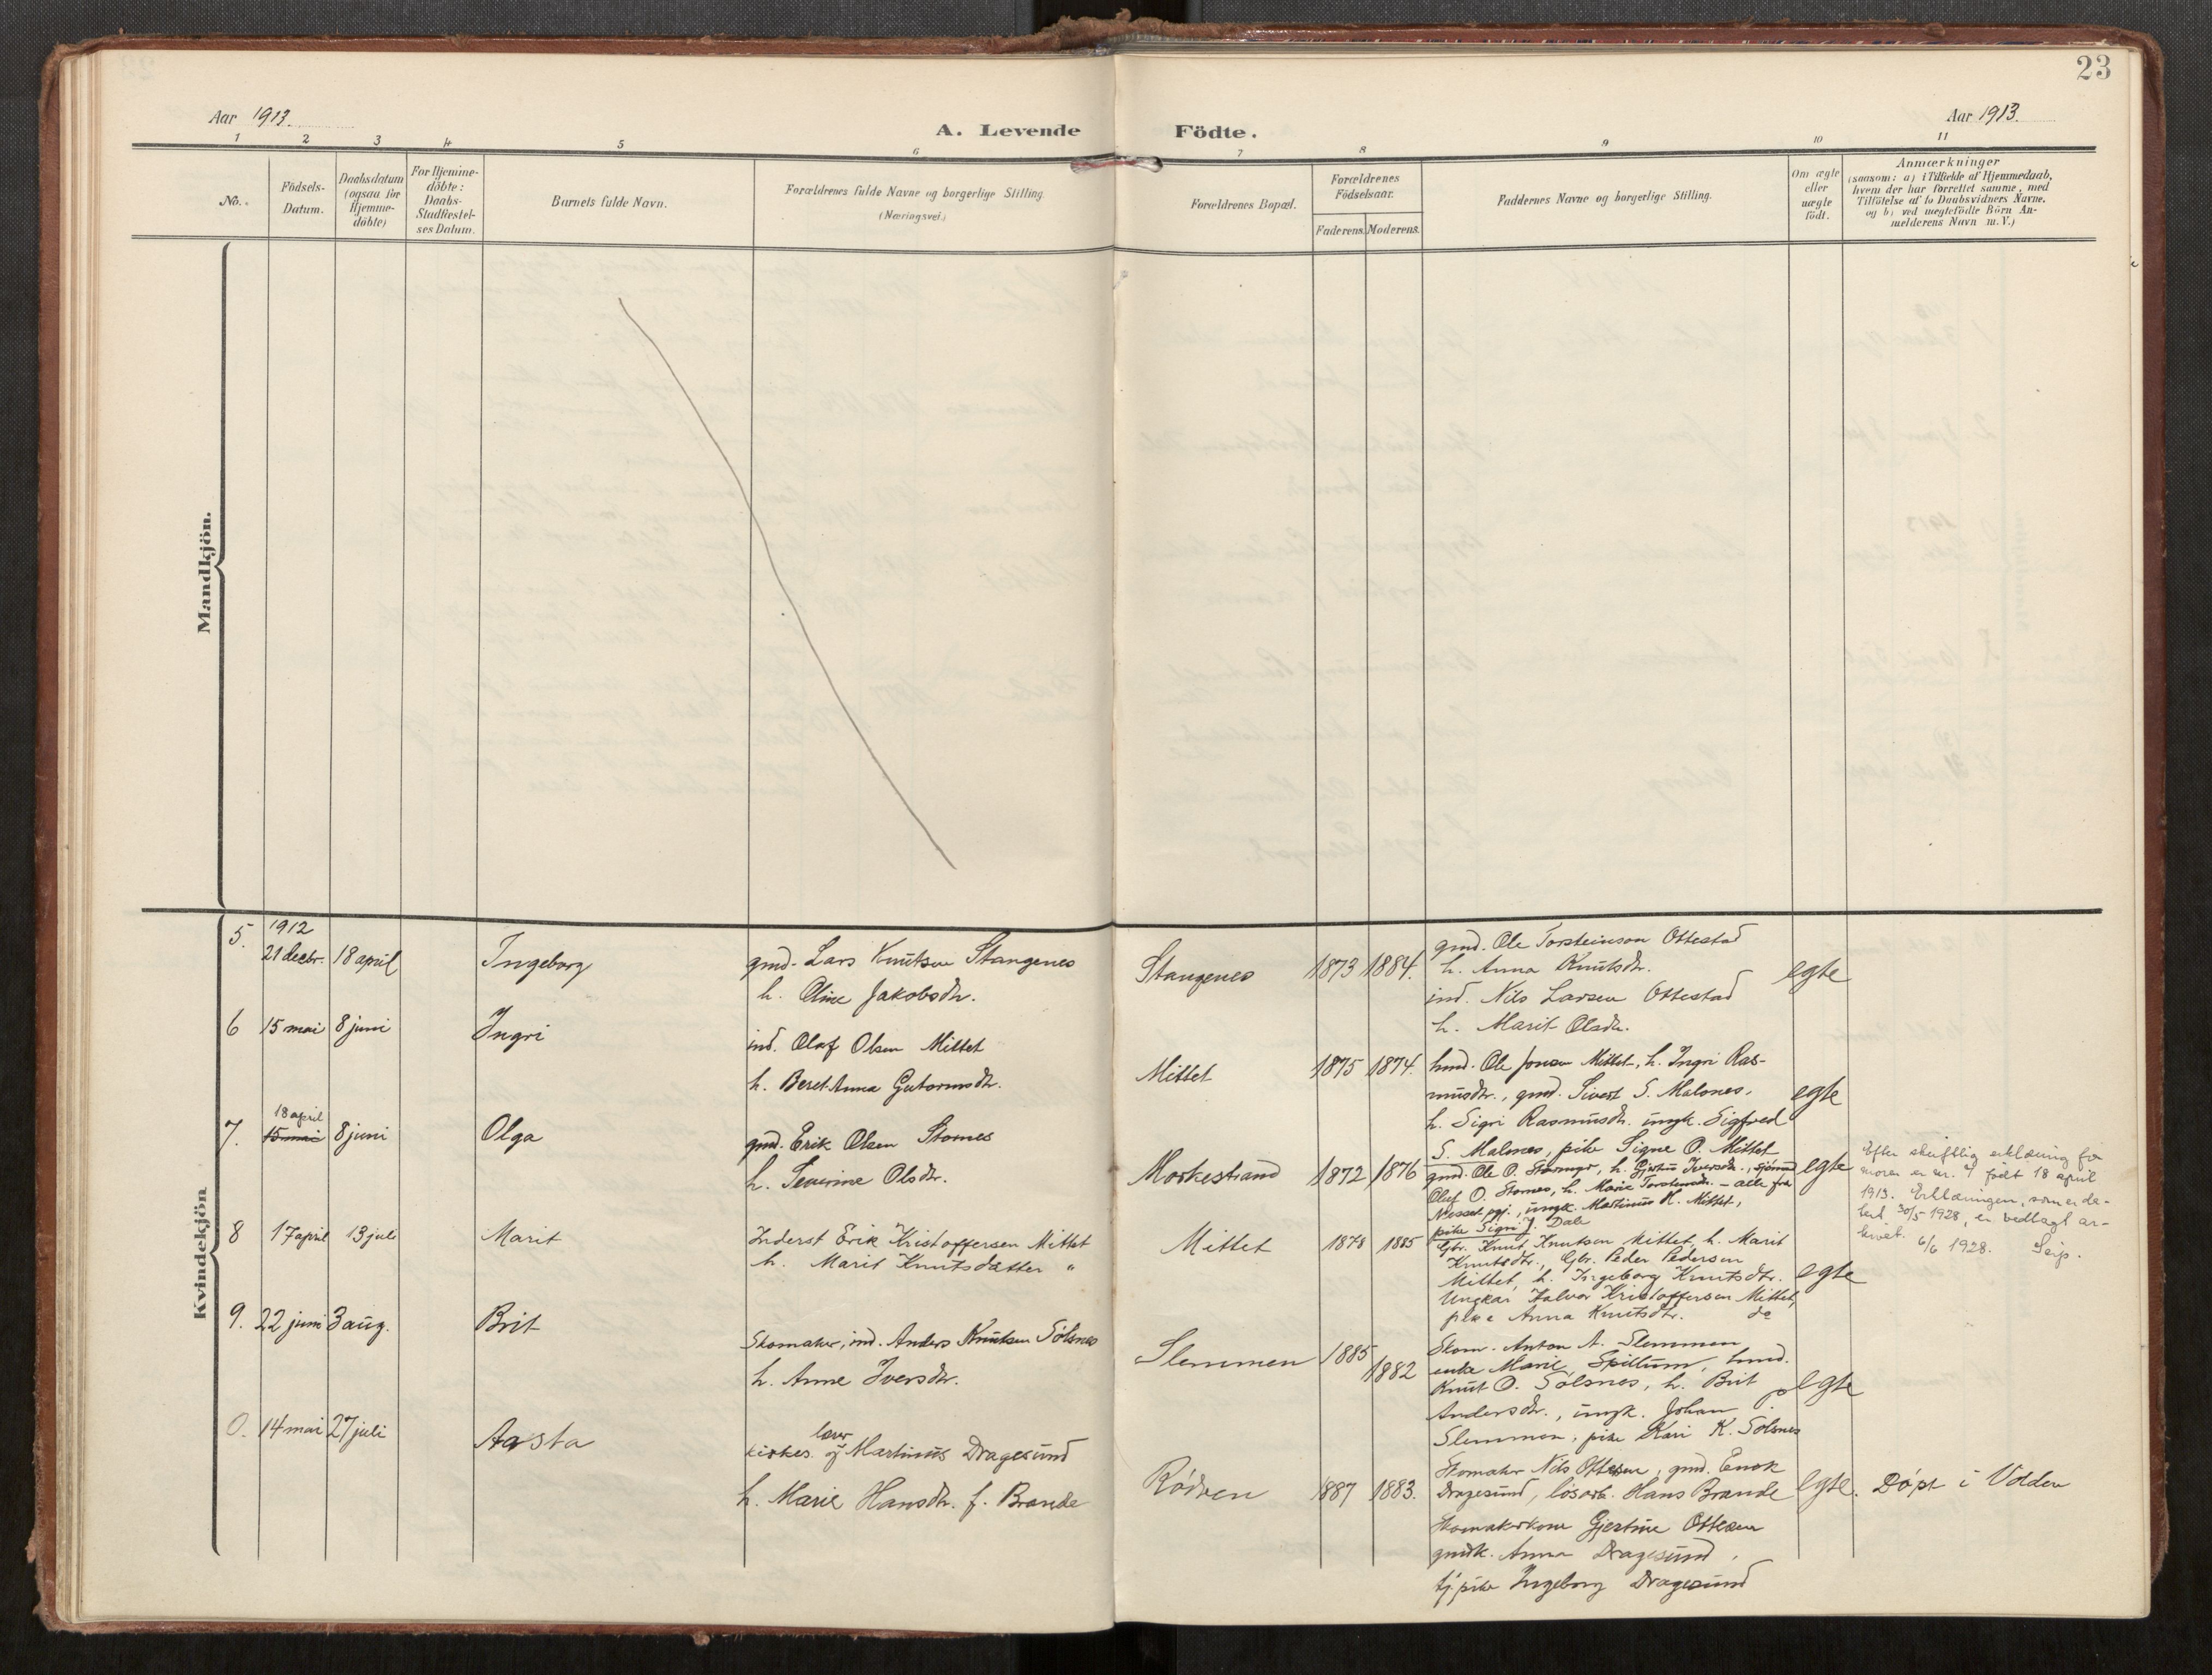 23
Aar 1913.
A. Levende Födte.
Aar 1913.
1 2 3 4 5 6 7 8 9 10 11
No.
Födsels-
Datum.
Daabsdatum
(ogsaa for
Hjemme-
döbte)
For Hjemme-
döbte:
Daabs-
Stadfæstel-
ses Datum.
Barnets fulde Navn.
Forældrenes fulde Navne og borgerlige Stilling
(Næringsvei.)
Forældrenes Bopæl.
Forældrenes
Födselsaar.
Faderens. Moderens.
Faddernes Navne og borgerlige Stilling.
Om ægte
eller
uægte
födt.
Anmærkninger
(saasom: a) i Tilfælde af Hjemmedaab,
hvem der har forrettet samme, med
Tilföielse af to Daabsvidners Navne.
og b) ved uægtefödte Börn An-
melderens Navn m. V.)
Mandkjön.
Kvindekjön
5.
1912
21 decbr.
18 april
Ingeborg
gmd. Lars Knutsen Stangenes
h. Oline Jakobsdtr.
Stangenes
1873
1884.
gmd. Ole Torsteinson Ottestad
h. Anna Knutsdtr.
ind. Nils Larsen Ottestad
h. Marit Olsdtr.
egte
6
15 mai
8 juni
Ingri
ind. Olaf Olsen Mittet
h. Beret-Anna Gutormsdtr.
Mittet
1875
1874.
hmd. Ole Jonsen Mittet, h. Ingri Ras-
musdtr., gmd. Sivert S. Malones,
h. Sigri Rasmusdtr. ungk. Sigfred
S. Malmes, pike Signe O. Mittet
egte
7.
18 april
15 mai
8 juni
Olga
gmd. Erik Olsen Stomes
h. Severine Olsdtr.
Morkestrand
1872
1876
gmd. Ole O. Iversdtr.,
Olaf O. Stomes, h. Marie Torsteinsdtr. – alle fra
Nesset pgj., ungk. Martinus H. Mittet,
pike Sigri J. Dale
egte
Efter skriftlig erklæring fra
moren er nr. 7 født 18 april
1913. Erklæringen, som er da-
tert 30/5 1928, er vedlagt ar-
kivet. 6/6 1928. Seip.
8
17 april
13 juli
Marit
Inderst Erik Kristoffersen Mittet
h. Marit Knutsdatter "
Mittet
1878
1885
Gbr. Knut Knutsen Mittet, h. Marit
Knutsdtr., Gbr. Peder Pedersen
Mittet, h. Ingeborg Knutsdtr.
Ungkar Halvor Kristoffersen Mittet,
pike Anna Knutsdtr. do
egte
9.
22 juni
3 aug.
Brit
Skomaker, ind. Anders Knutsen Sølsnes
h. Anne Iversdtr.
Slemmen
1885
1882
Skom. Anton A. Slemmen
enke Marie Spillum, hmd.
Knut O. Sølsnes, h. Brit
Andersdtr., ungk. Johan P.
Slemmen, pike Kari K. Sølsnes
egte
0.
14 mai
27 juli
Aasta
lærer
kirkes. og Martinus Dragesund
h. Marie Hansdtr. f. Brande
Rödven
1887
1883.
Skomaker Nils Ottesen, gmd. Enok
Dragesund, løsarb. Hans Brande
Skomakerkone Gjertine Ottesen
gmdk. Anna Dragesund,
tj.pike Ingeborg Dragesund
egte.
Döpt i Volden